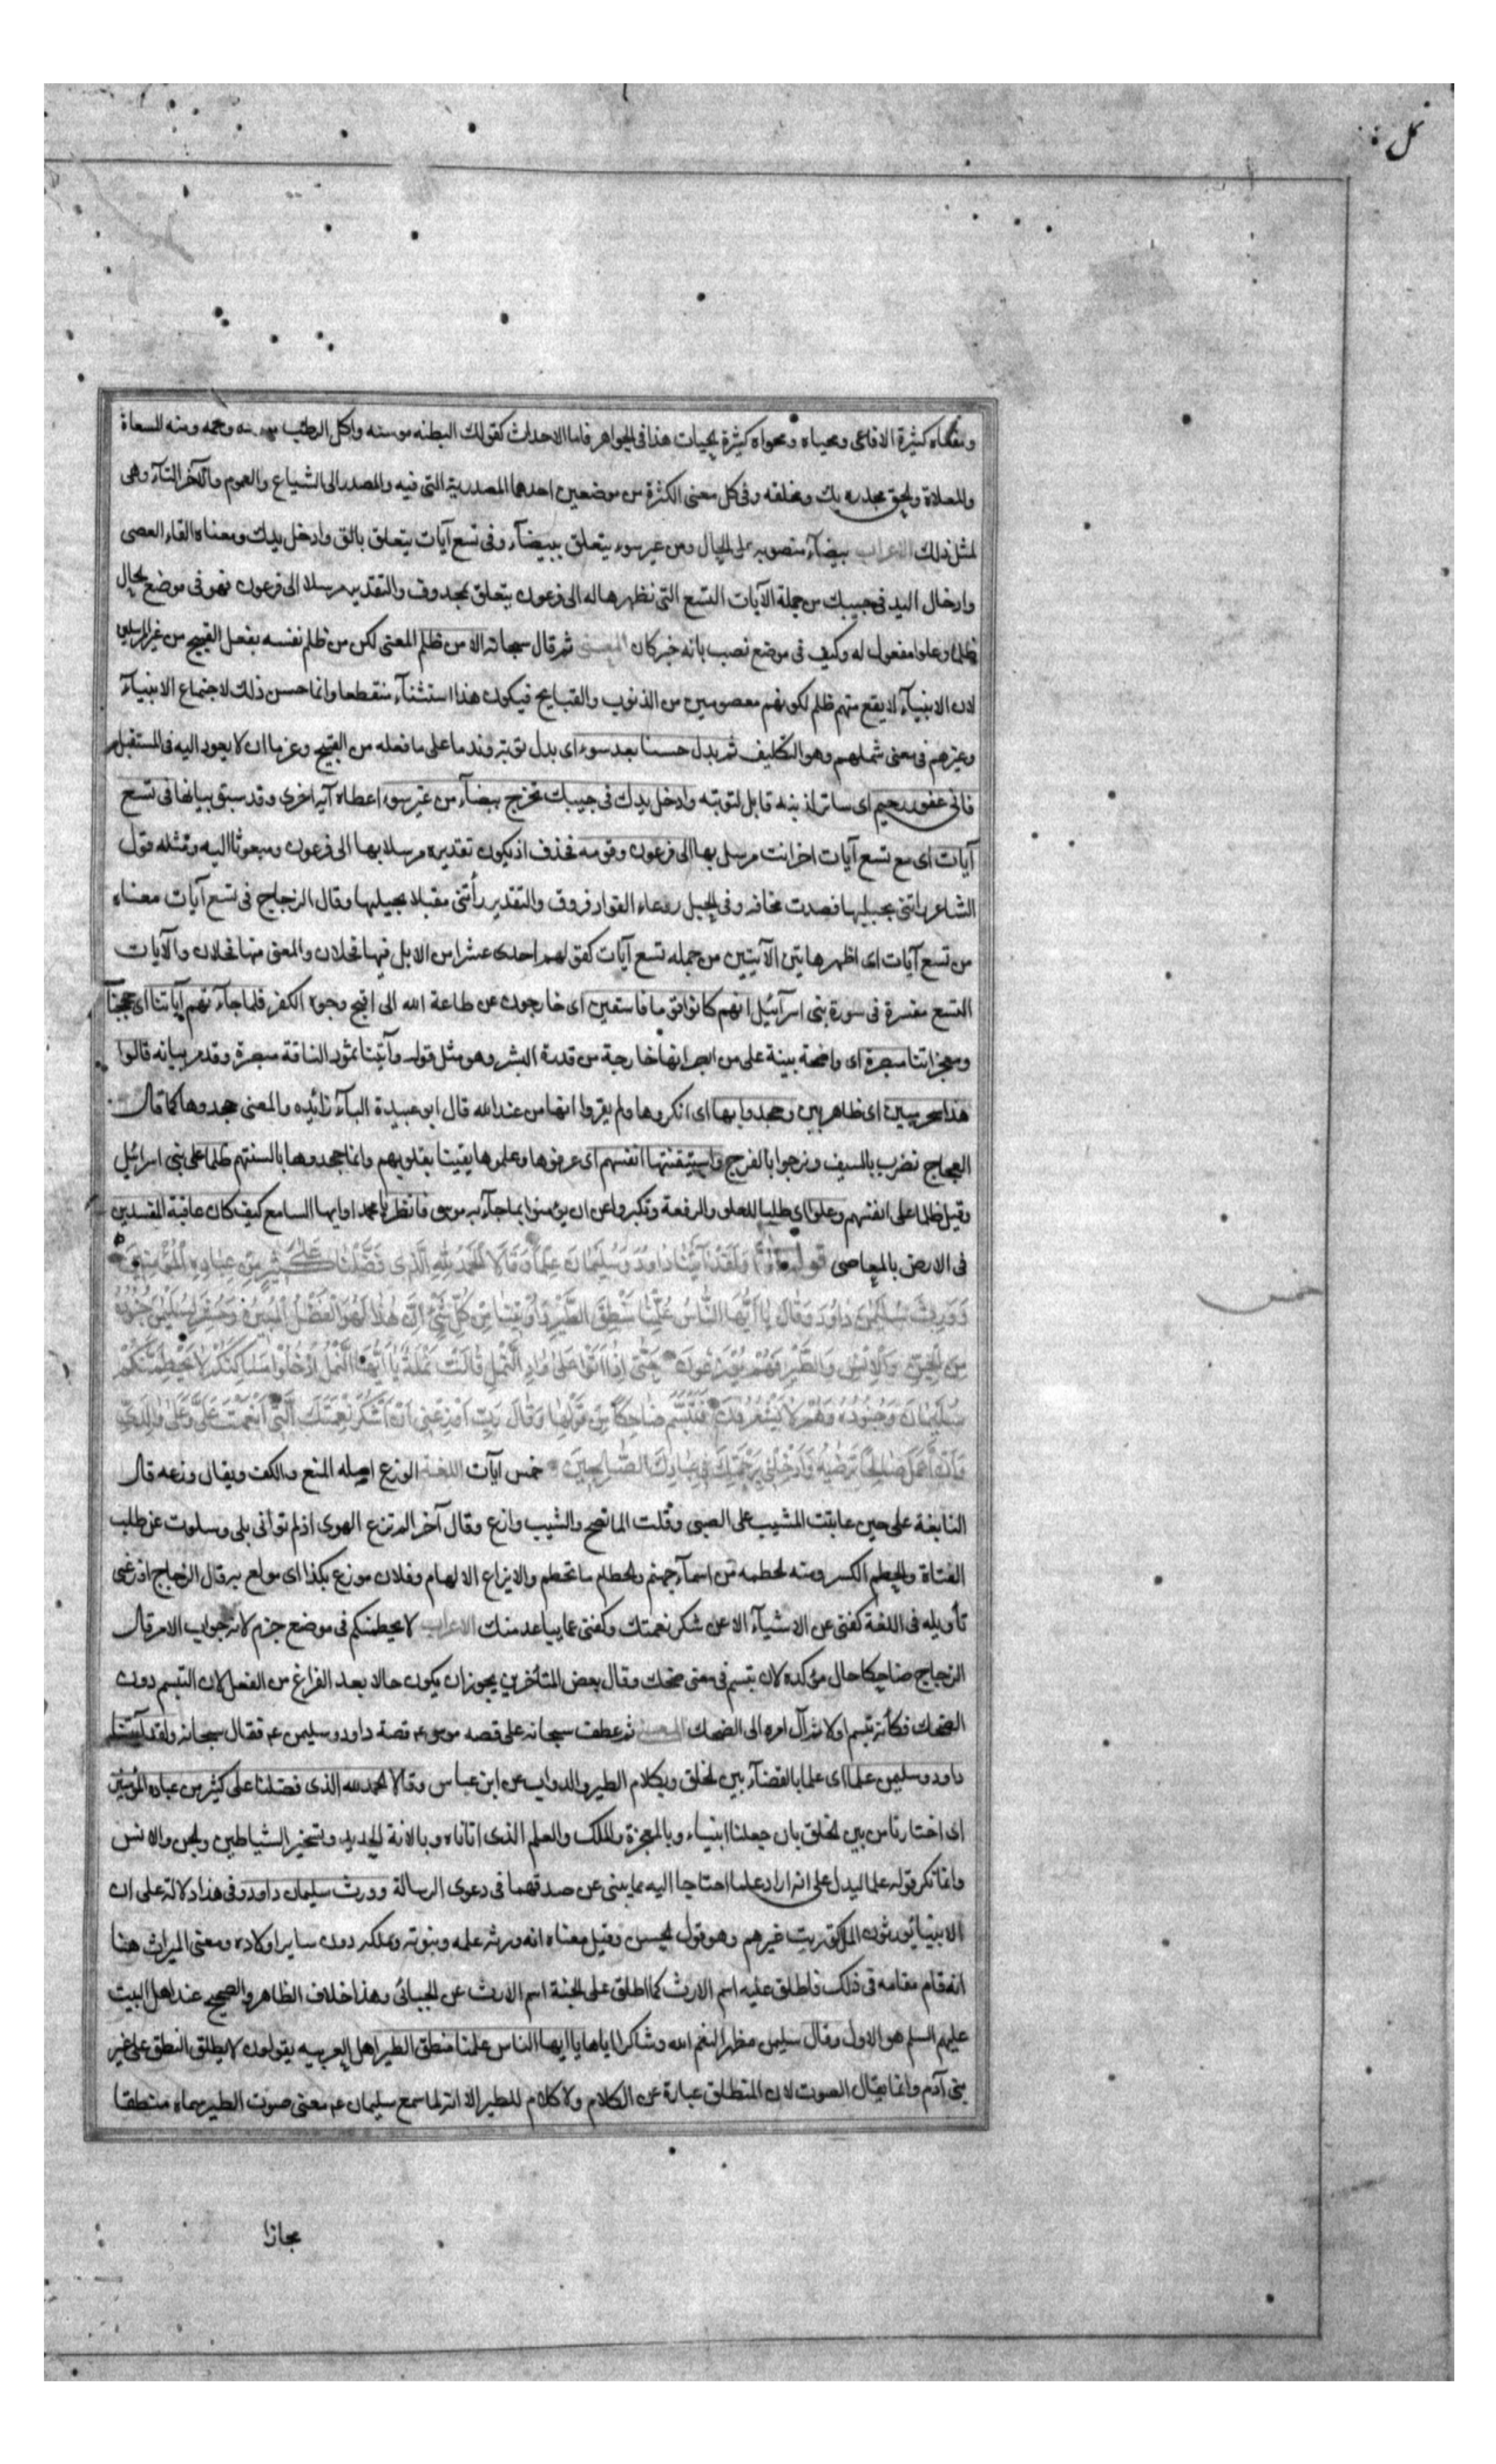 نمل
ومفعاه كثيرة الافاعى ومحياه ومحواه كثيرة الحيات هذا فى الجواهر فاما الاحداث كقولك البطنه موسنه واكل الرطب ومنه المسعاة
والمعلاة والحق مجدره بك ومخلقه وفى كل معنى الكثرة من موضعين احدهما المصدرية التى فيه والمصدر الى الشياع والعموم والآخر التاء وهى
لمثل ذلك الاعراب بيضآء منصوبه على الحال ومن غير سوء يتعلق ببيضآء وفى تسع آيات يتعلق بالق وادخل يدك ومعناه القاء العصى
وادخال اليد فى جيبك من جملة الآيات التسع التى نظهرها له الى فرعون يتعلق بمحذوف والتقدير مرسلا الى فرعون فهو فى موضع الحال
ظلما وعلوا مفعول له وكيف فى موضع نصب بانه خبر كان المعنى ثم قال سبحانه الا من ظلم المعنى لكن من ظلم نفسه بفعل القبيح من غير المرسلين
لان الانبيآء لا يقع منهم ظلم لكونهم معصومين من الذنوب والقبايح فيكون هذا استثنآء منقطعا وانما حسن ذلك لاجتماع الانبيآء
وغيرهم فى معنى شملهم وهو التكليف ثم بدل حسنا بعد سوء اى بدل توبة وندما على ما فعله من القبيح وعزما ان لا يعود اليه فى المستقبل
فانى غفور رحيم اى ساتر لذنبه قابل لتوبته وادخل يدك فى جيبك تخرج بيضآء من غير سوء اعطاه آية اخرى وقد سبق بيانها فى تسع
آيات اى مع تسع آيات اخر انت مرسل بها الى فرعون وقومه فحذف اذ يكون تقديره مرسلا بها الى فرعون ومبعوثا اليه ومثله قول
الشاعر راتنى بحبليها فصدت مخافة وفى الحبل روعاء الفواد فروق والتقدير رأتنى مقبلا بحبليها وقال الزجاج فى تسع آيات معناه
من تسع آيات اى اظهر هاتين الآيتين من جمله تسع آيات كقولهم احدى عشرا من الابل فيها فحلان والمعنى منها فحلان والآيات
التسع مفسرة فى سورة بنى اسرآئيل انهم كانوا قوما فاسقين اى خارجون عن طاعة الله الى اقبح وجوه الكفر فلما جآءتهم آياتنا اى حججنا
ومعجزاتنا مبصرة اى واضحة بينة على من ابصر انها خارجة من قدرة البشر وهو مثل قوله وآتينا ثمود الناقة مبصرة وقدم بيانه قالوا
هذا سحر مبين اى ظاهر بين وجحدوا بها اى انكروها ولم يقروا انها من عند الله قال ابو عبيدة البآء زائده والمعنى جحدوها كما قال
العجاج نضرب بالسيف ونرجوا بالفرج واستيقنتها انفسهم اى عرفوها وعلموها يقينا بقلوبهم وانما جحدوها بالسنتهم ظلما على بنى اسرائيل
وقيل ظلما على انفسهم وعلوا اى طلبا للعلو والرفعة وتكبروا عن ان يؤمنوا بما جآء به موسى فانظر يا محمد او ايها السامع كيف كان عاقبة المفسدين
فى الارض بالمعاصى قوله تعالى وَلَقَدْ آتَيْنَا دَاوُدَ وَسُلَيْمَانَ عِلْمًا وَقَالَا الْحَمْدُ لِلَّهِ الَّذِى فَضَّلَنَا عَلَى كَثِيرٍ مِنْ عِبَادِهِ الْمُؤْمِنِينَ
وَوَرِثَ سُلَيْمٰنُ دَاوُدَ وَقَالَ يَا اَيُّهَا النَّاسُ عُلِّمْنَا مَنْطِقَ الطَّيْرِ وَاُوتِينَا مِنْ كُلِّ شَىْءٍ اِنَّ هٰذَا لَهُوَ الْفَضْلُ الْمُبِينُ وَحُشِرَ لِسُلَيْمٰنَ جُنُودُهُ
مِنَ الْجِنِّ وَالْاِنْسِ وَالطَّيْرِ فَهُمْ يُوزَعُونَ حَتّٰى اِذَا اَتَوْا عَلٰى وَادِ النَّمْلِ قَالَتْ نَمْلَةٌ يَا اَيُّهَا النَّمْلُ ادْخُلُوا مَسَاكِنَكُمْ لَا يَحْطِمَنَّكُمْ
سُلَيْمَانُ وَجُنُودُهُ وَهُمْ لَا يَشْعُرُونَ فَتَبَسَّمَ ضَاحِكًا مِنْ قَوْلِهَا وَقَالَ رَبِّ اَوْزِعْنِى اَنْ اَشْكُرَ نِعْمَتَكَ الَّتِى اَنْعَمْتَ عَلَىَّ وَعَلٰى وَالِدَىَّ
وَاَنْ اَعْمَلَ صَالِحًا تَرْضٰيهُ وَاَدْخِلْنِى بِرَحْمَتِكَ فِى عِبَادِكَ الصَّالِحِينَ خمس آيات اللغة الوزع اصله المنع والكف ويقال وزعه قال
النابغة على حين عاتبت المشيب على الصبى وقلت الما تصح والشيب وازع وقال آخر الم تزع الهوى اذ لم تواتى بلى وسلوت عن طلب
الفتاة والحطم الكسر ومنه الحطمه من اسمآء جهنم والحطام ما تحطم والايزاع الالهام وفلان موزع بكذا اى مولع به قال الزجاج اوزعنى
تأويله فى اللغة كفنى عن الاشيآء الا عن شكر نعمتك وكفنى عما يباعد منك الاعراب لا يحطمنكم فى موضع جزم لانه جواب الامر قال
الزجاج ضاحكا حال مؤكده لان تبسم فى معنى ضحك وقال بعض المتأخرين يجوز ان يكون حالا بعد الفراغ من الفعل لان التبسم دون
الضحك فكأنه تبسم اولا ثم آل امره الى الضحك المعنى ثم عطف سبحانه على قصه موسى ع قصة داود وسليمن ع فقال سبحانه ولقد آتينا
داود وسليمن علما اى علما بالقضآء بين الخلق وبكلام الطير والدواب عن ابن عباس وقالا الحمد لله الذى فضلنا على كثير من عباده المؤمنين
اى اختارنا من بين الخلق بان جعلنا انبياء وبالمعجزة والملك والعلم الذى اتاناه وبالانة الحديد وتسخير الشياطين والجن والانس
وانما نكر قوله علما ليدل على انه اراد علما احتاجا اليه مما يبنى عن صدقهما فى دعوى الرسالة وورث سليمان داود وفى هذا دلالة على ان
الانبياء يورثون المال كتوريث غيرهم وهو قول الحسن وقيل معناه انه ورثه علمه ونبوته وملكه دون ساير اولاده ومعنى الميراث هنا
انه قام مقامه فى ذلك فاطلق عليه اسم الارث كما اطلق على الجنة اسم الارث عن الجبائى وهذا خلاف الظاهر والصحيح عند اهل البيت
عليهم السلم هو الاول وقال سليمن مظهرا لنعم الله وشاكرا اياها يا ايها الناس علمنا منطق الطير اهل العربيه يقولون لا يطلق النطق على غير
بنى آدم وانما يقال الصوت لان المنطلق عبارة عن الكلام ولا كلام للطير الا انه لما سمع سليمان ع معنى صوت الطير سماه منطقا
خمس
مجازا